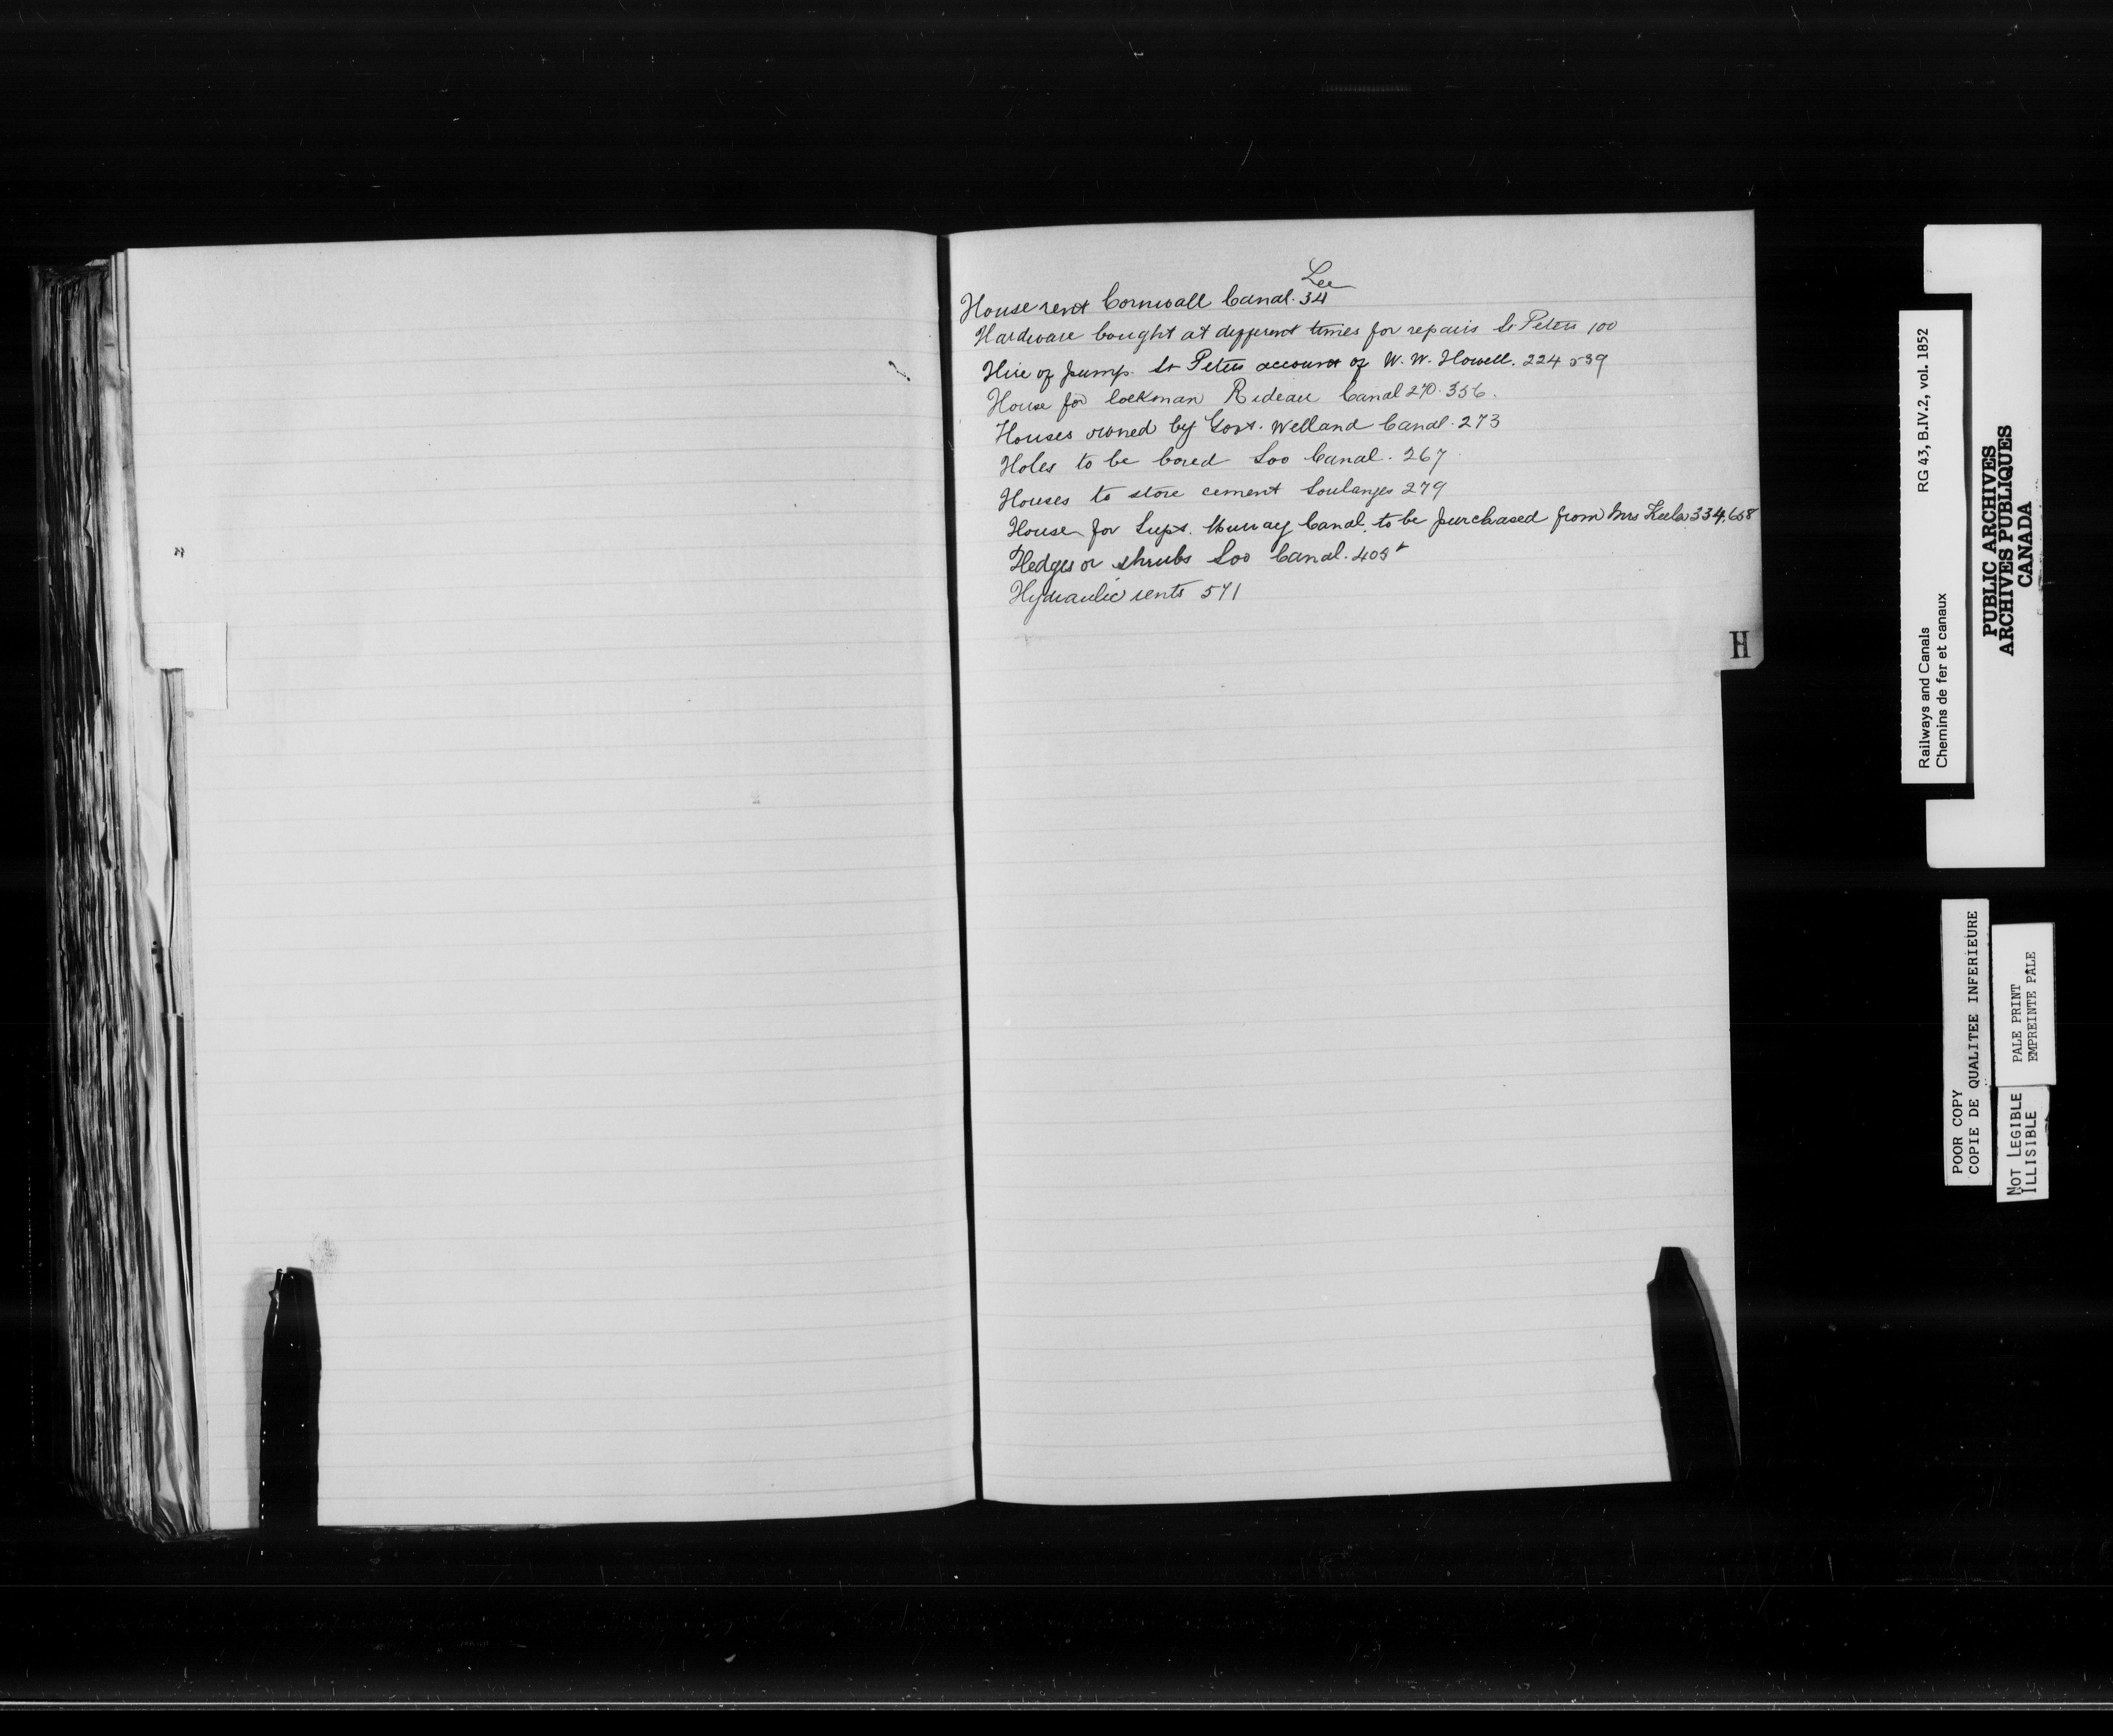 Lee
House rent Cornwall Canal. 34
Hardware bought at different times for repairs St Peters 100
Hire of pump. St Peters account of W. W. Howell. 224 539
House for lockman Rideau Canal 270. 356.
Houses owned by Govt. Welland Canal. 273
Holes to be bored Soo Canal. 267
Houses to store cement Soulanges 279
House for Supt. Murray Canal. to be purchased from Mrs Keeler 334, 658
Hedges or shrubs Soo Canal. 405
Hydraulic rents 571
H
Railways and Canals RG 43, B.IV.2, vol. 1852
Chemins de fer et canaux
PUBLIC ARCHIVES
ARCHIVES PUBLIQUES
CANADA
POOR COPY
COPIE DE QUALITEE INFERIEURE
PALE PRINT
EMPREINTE PÂLE
NOT LEGIBLE
ILLISIBLE